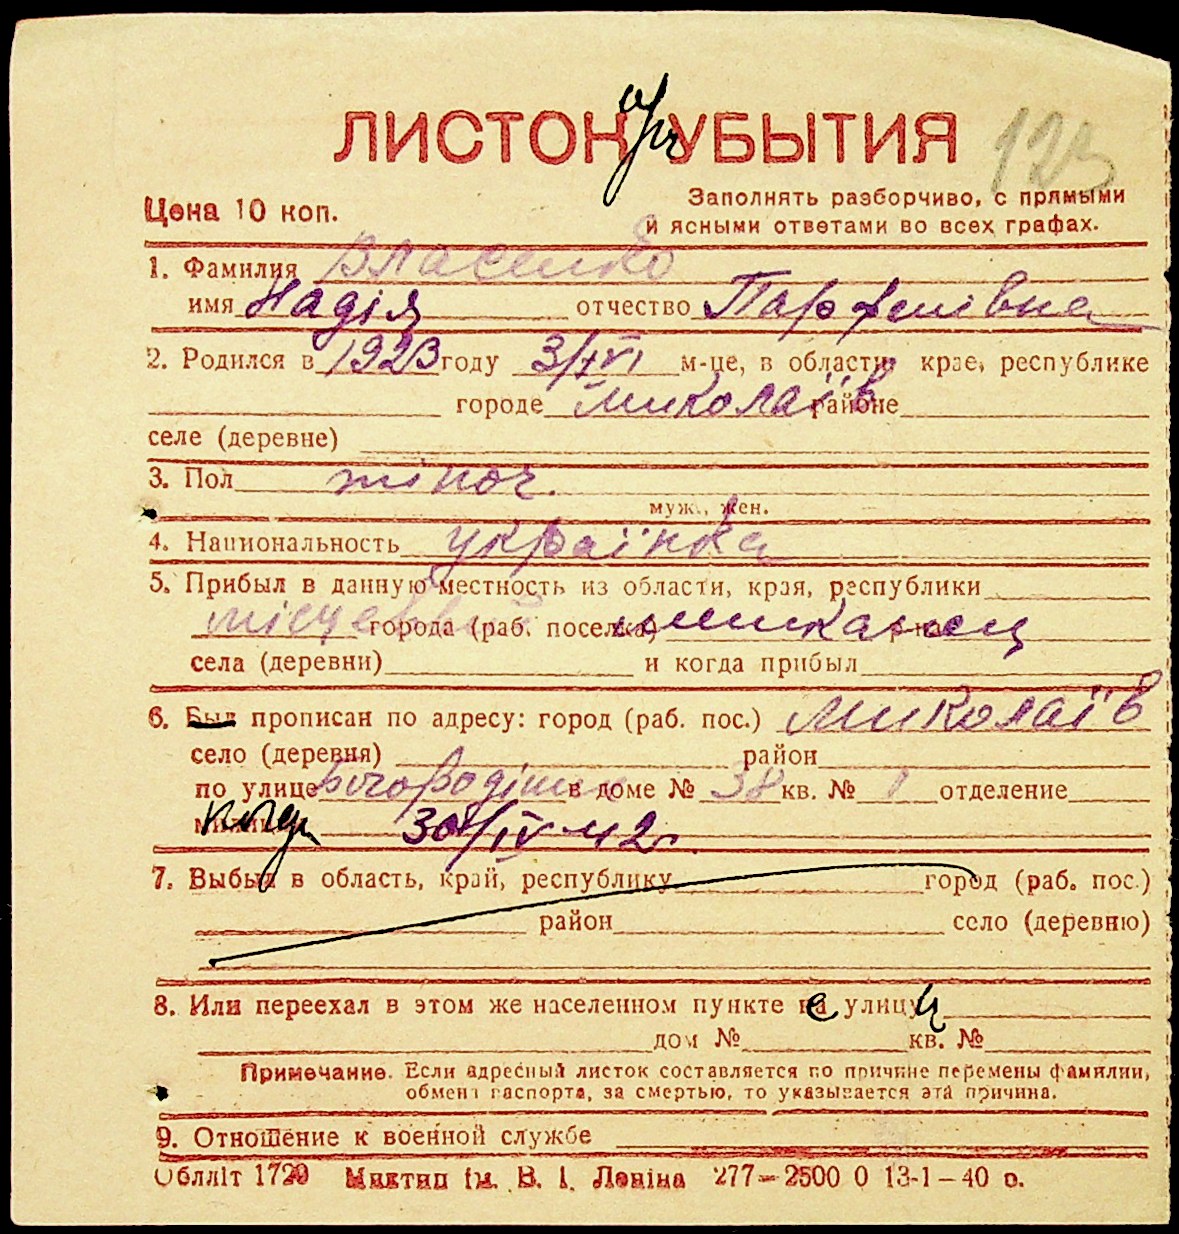 ЛИСТОК при УБЫТИЯ 123
Цена 10 коп.
Заполнять разборчиво, с прямыми
и ясными ответами во всех графах.
1. Фамилия Власенко
имя Надія отчество Парфенівна
2. Родился в 1923 году 3/VI м-це, в области, крае, республике
городе Миколаїв районе
селе (деревне)
3. Пол жіноч.
муж., жен.
4. Национальность українка
5. Прибыл в данную местность из области, края, республики
місцевий города (раб. поселка) мешканец р-на
села (деревни) и когда прибыл
6. Был прописан по адресу: город (раб. пос.) Миколаїв
село (деревня) район
по улице в доме № 38 кв. № 1 отделение
милиции когда 30/IV 42 г.
7. Выбыл в область, край, республику город (раб. пос.)
район село (деревню)
8. Или переехал в этом же населенном пункте с улицы
дом № кв. №
Примечание. Если адресный листок составляется по причине перемены фамилии,
обмена паспорта, за смертью, то указывается эта причина.
9. Отношение к военной службе
Облліт 1729 Миктип ім. В. І. Леніна 277—2500 0 13-1—40 р.